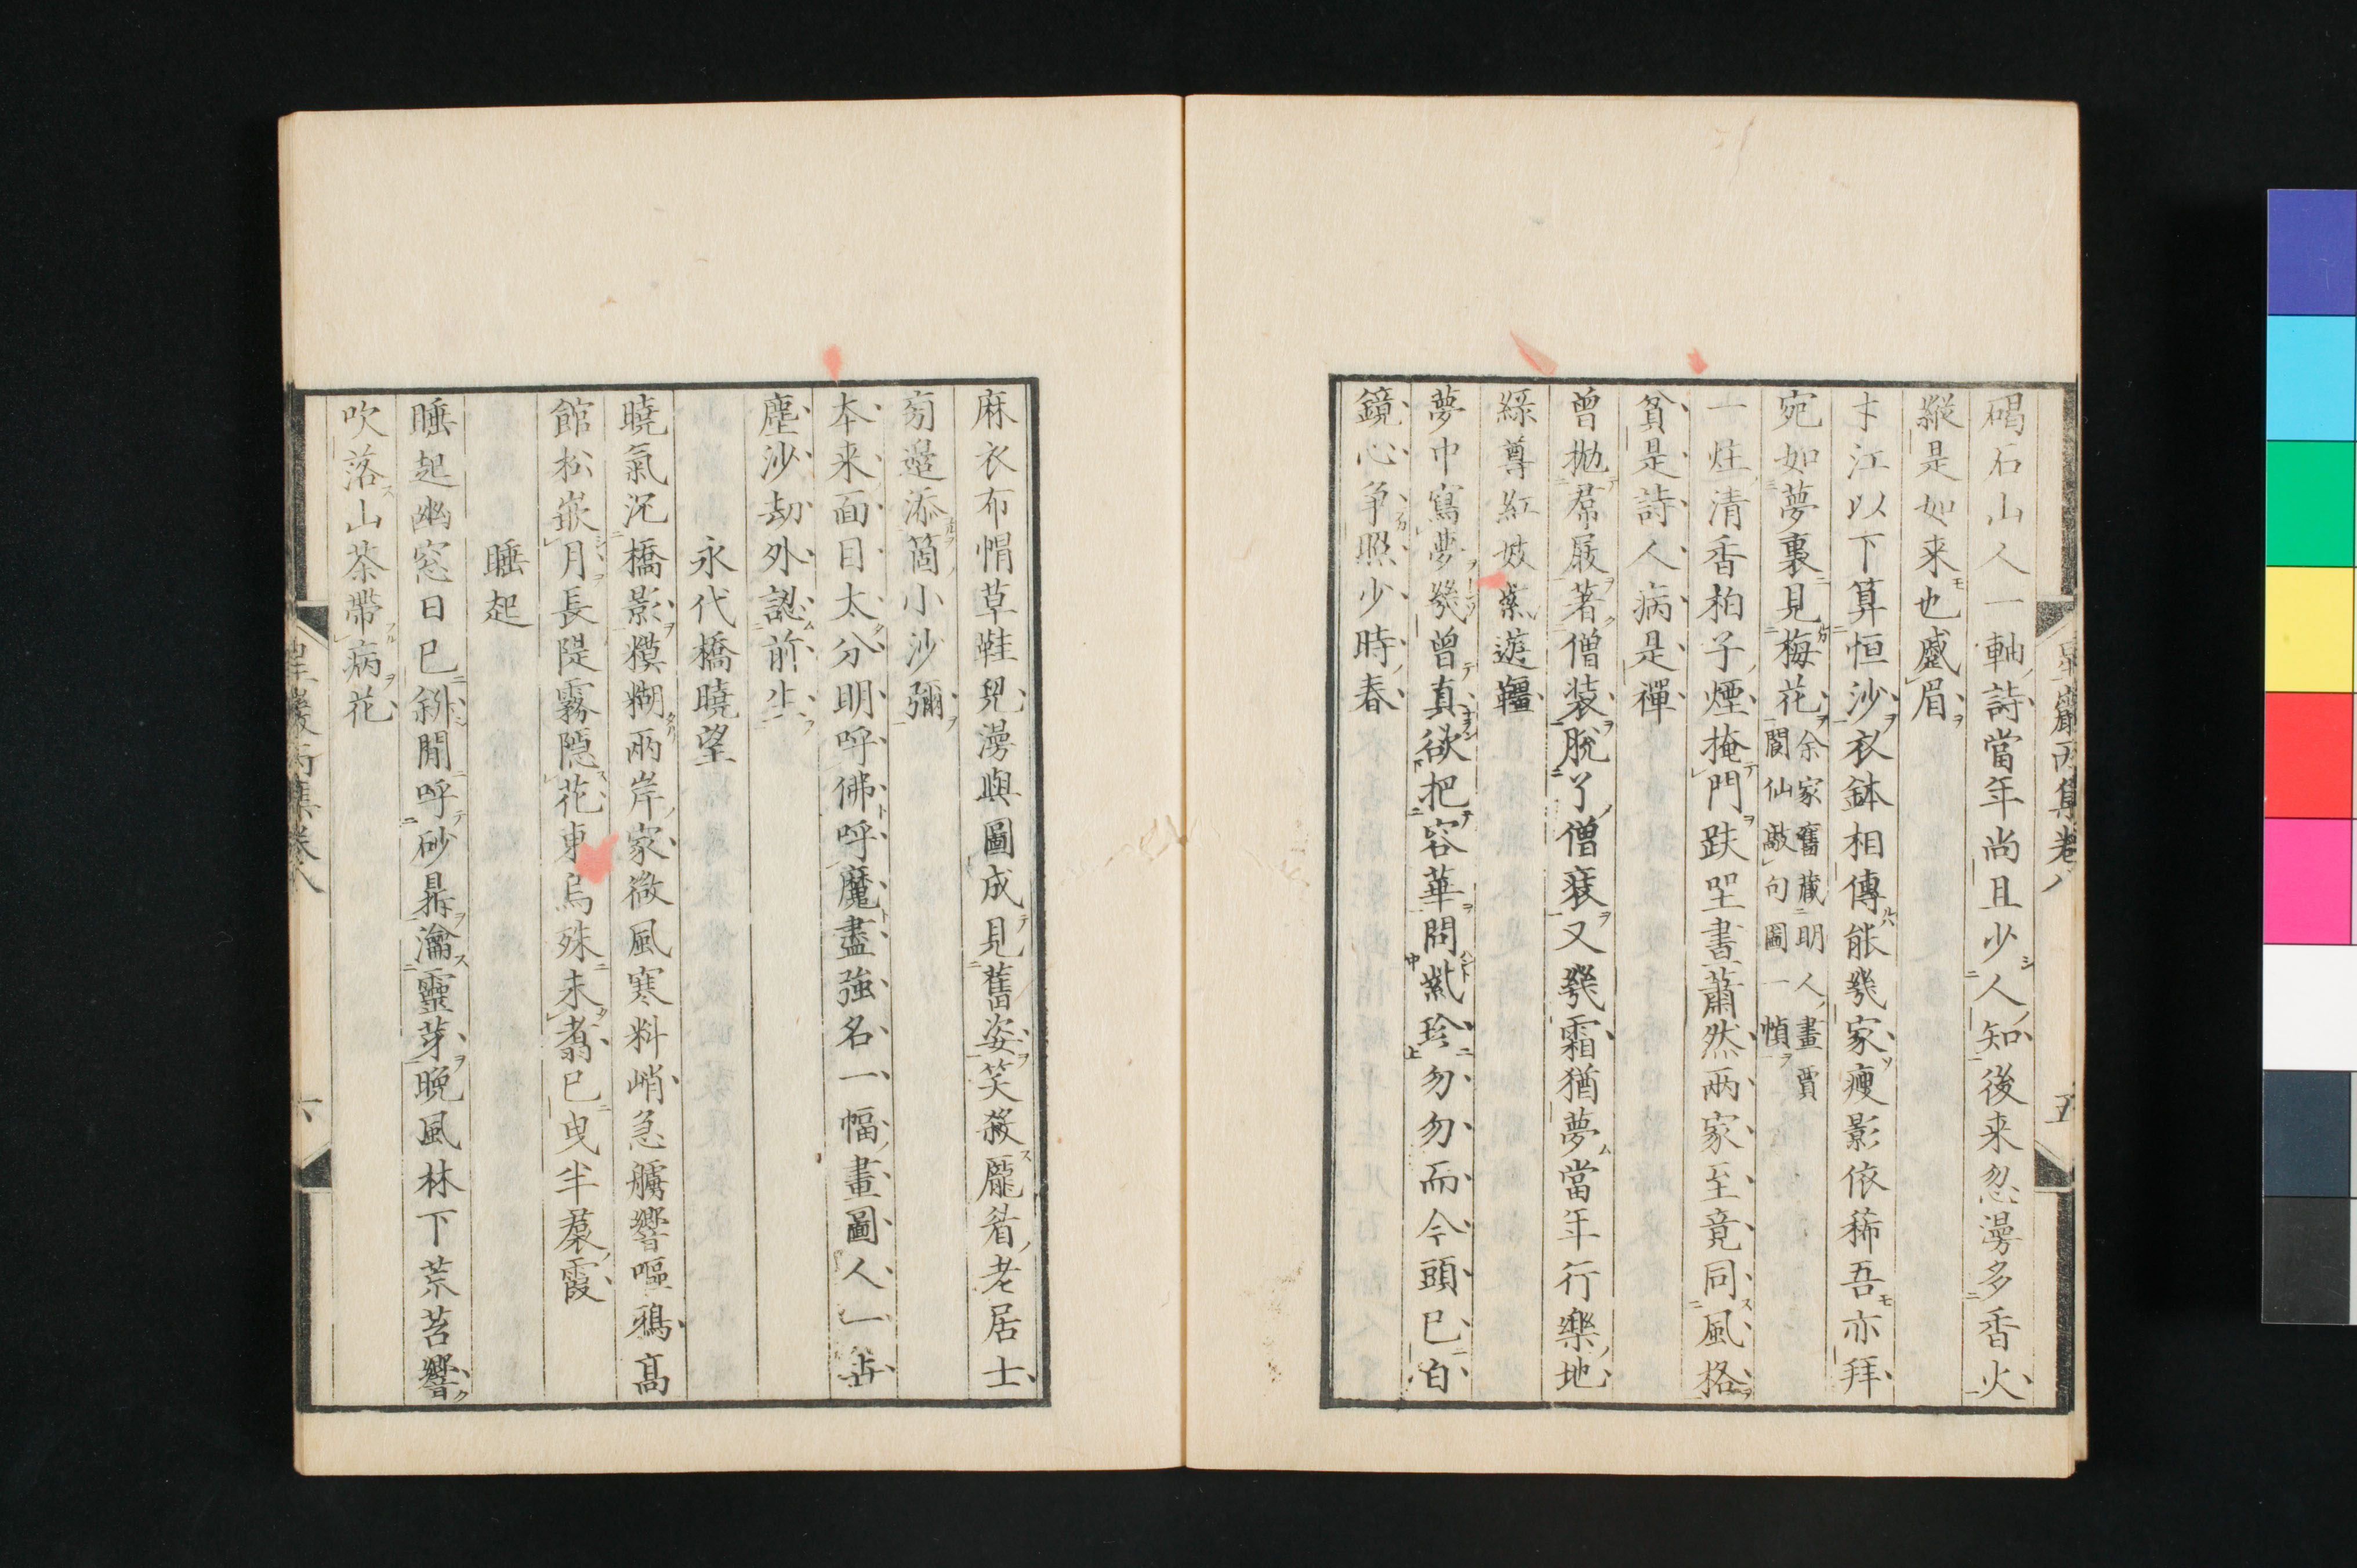 碣石山人一軸詩當年尚且少人知後来忽漫多香火
縱是如来也蹙眉
才江以下算恒沙衣鉢相傳能幾家瘦影依稀吾亦拜
宛如夢裏見梅花余家舊藏明人畫賈
閬仙敲句圖一幀
一炷清香柏子煙掩門趺坐晝蕭然兩家至竟同風格
貧是詩人病是禪
曾抛屌屐著僧装脱了僧装又幾霜猶夢當年行樂地
緑尊紅妓紫遊韁
夢中寫夢幾曾真欲把容華問紫珍勿勿而今頭已白
鏡心争照少時春
星巖丙集卷八
五
麻衣布帽草鞋兒漫與圖成見舊姿笑殺龐翁老居士
旁邊添箇小沙彌
本来面目太分明呼佛呼魔盡強名一幅畫圖人一
塵沙劫外認前生
永代橋曉望
曉氣况橋影糢糊兩岸家微風寒料峭急艣響嘔鴉高
館松嵌月長隄霧隠花東烏殊未翥已曳半羣霞
睡起
睡起幽窓日已斜閒呼砂鼎瀹靈芽晩風林下荒苔響
吹落山茶帶病花
星巖丙集卷八
六